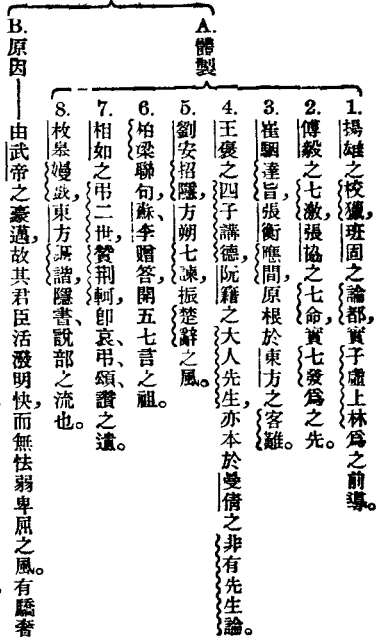 A. 體製
1. 揚雄之校獵,班固之論都,實子虛上林爲之前導。
2. 傅毅之七激,張協之七命,實七發爲之先。
3. 崔駰達旨,張衡應間,原根於東方之客難。
4. 王褒之四子講德,阮籍之大人先生,亦本於曼倩之非有先生論。
5. 劉安招隱,方朔七諫,振楚辭之風。
6. 柏梁聯句,蘇、李贈答,開五七言之祖。
7. 相如之弔二世,贊荆軻,卽哀、弔、頌、讚之遺。
8. 枚皋嫚戲,東方詼諧,隱書、說部之流也。
B. 原因——由武帝之豪邁,故其君臣活潑明快,而無怯弱卑屈之風。有驕奢